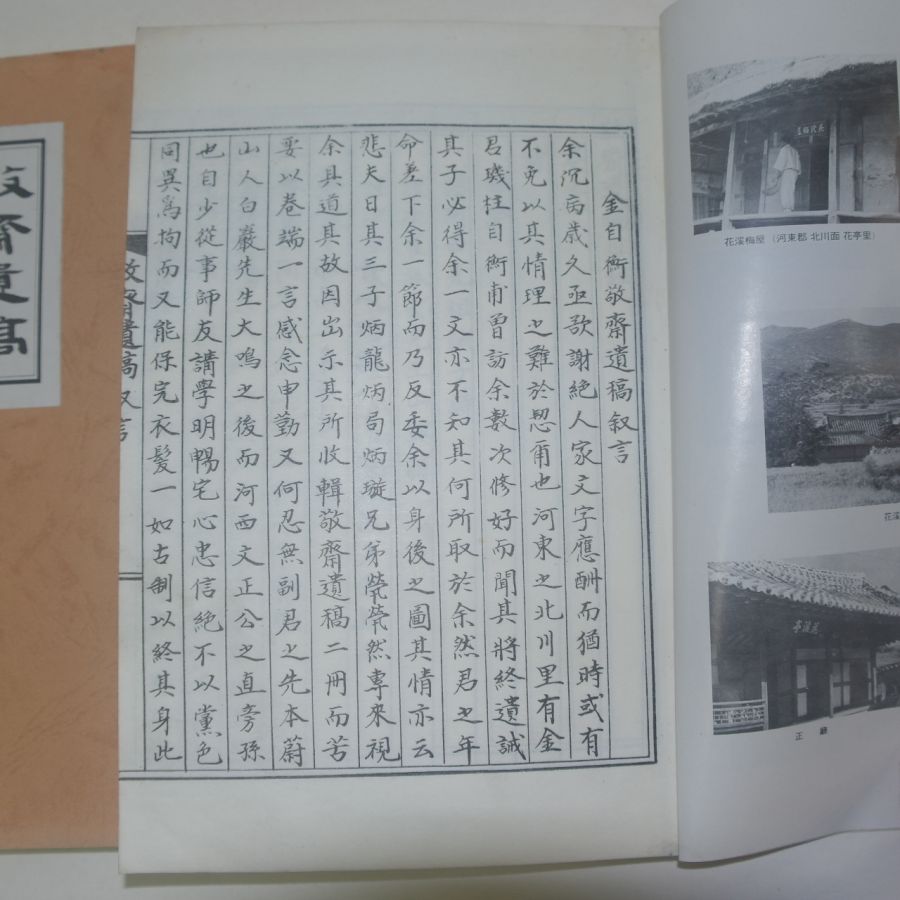 金自衡敬齋遺稿叙言
余沉痾歲久亟欲謝絕人家文字應酬而猶時或有
不免以其情理之難於恝甭也河東之北川里有金
君璣柱自衡甫曾訪余數次修好而聞其將終遺誡
其子必得余一文亦不知其何所取於余然君之年
命差下余一節而乃反委余以身後之圖其情亦云
悲夫日其三子炳龍炳局炳璇兄弟煢煢然專來視
余具道其故因出示其所收輯敬齋遺稿二冊而苦
要以卷端一言感念申勤又何忍無副君之先本蔚
山人白巖先生大鳴之後而河西文正公之直旁孫
也自少從事師友講學明暢宅心忠信絕不以黨色
同異為拘而又能保完衣髮一如古制以終其身此
敬齋遺稿 叙言
敬齋遺稿
花溪梅屋 (河東郡 北川面 花亭里)
花溪
正廳